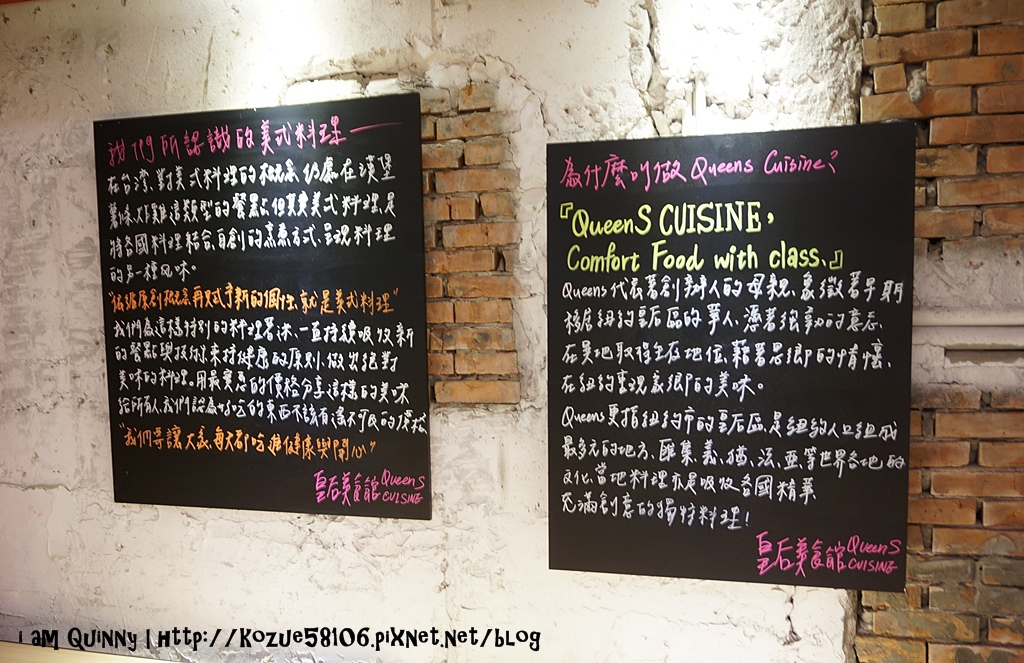 我們所認識的美式料理——
在台灣、對美式料理的概念仍處在漢堡
薯條、炸雞這類型的餐點、但其實美式料理、是
將各國料理結合、自創的烹煮方式、呈現料理
的另一種風味。
"依循原創概念再賦予新的個性、就是美式料理"
我們為這樣特別的料理著迷、一直持續吸收新
的餐點與技術、秉持健康的原則、做出絕對
美味的料理。用最實惠的價格分享這樣的美味
給所有人、我們認為好吃的東西不該有遙不可及的價格
"我們要讓大家、每天都吃進健康與開心"
皇后美食館 QueenS
CUISINE
為什麼叫做 Queens Cuisine?
『QueenS CUISINE,
Comfort Food with class.』
Queens代表著創辦人的母親、象徵著早期
移居紐約皇后區的華人、憑著很強的意志、
在異地取得生存地位、藉著思鄉的情懷、
在紐約重現家鄉的美味。
Queens更指紐約市的皇后區、是紐約人口組成
最多元的地方、匯集義、猶、法、亞等世界各地的
文化、當地料理亦是吸收各國精華
充滿創意的獨特料理!
皇后美食館 QueenS
CUISINE
i am Quinny | Http://Kozue58106.pixnet.net/blog